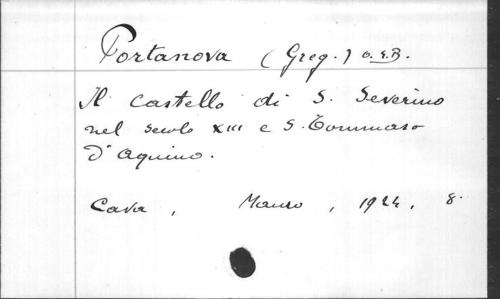 Portanova (Greg.) O.S.B.
Il castello di S. Severino
nel secolo XIII e S. Tommaso
d'Aquino.
Cava, Mauro, 1924, 8.